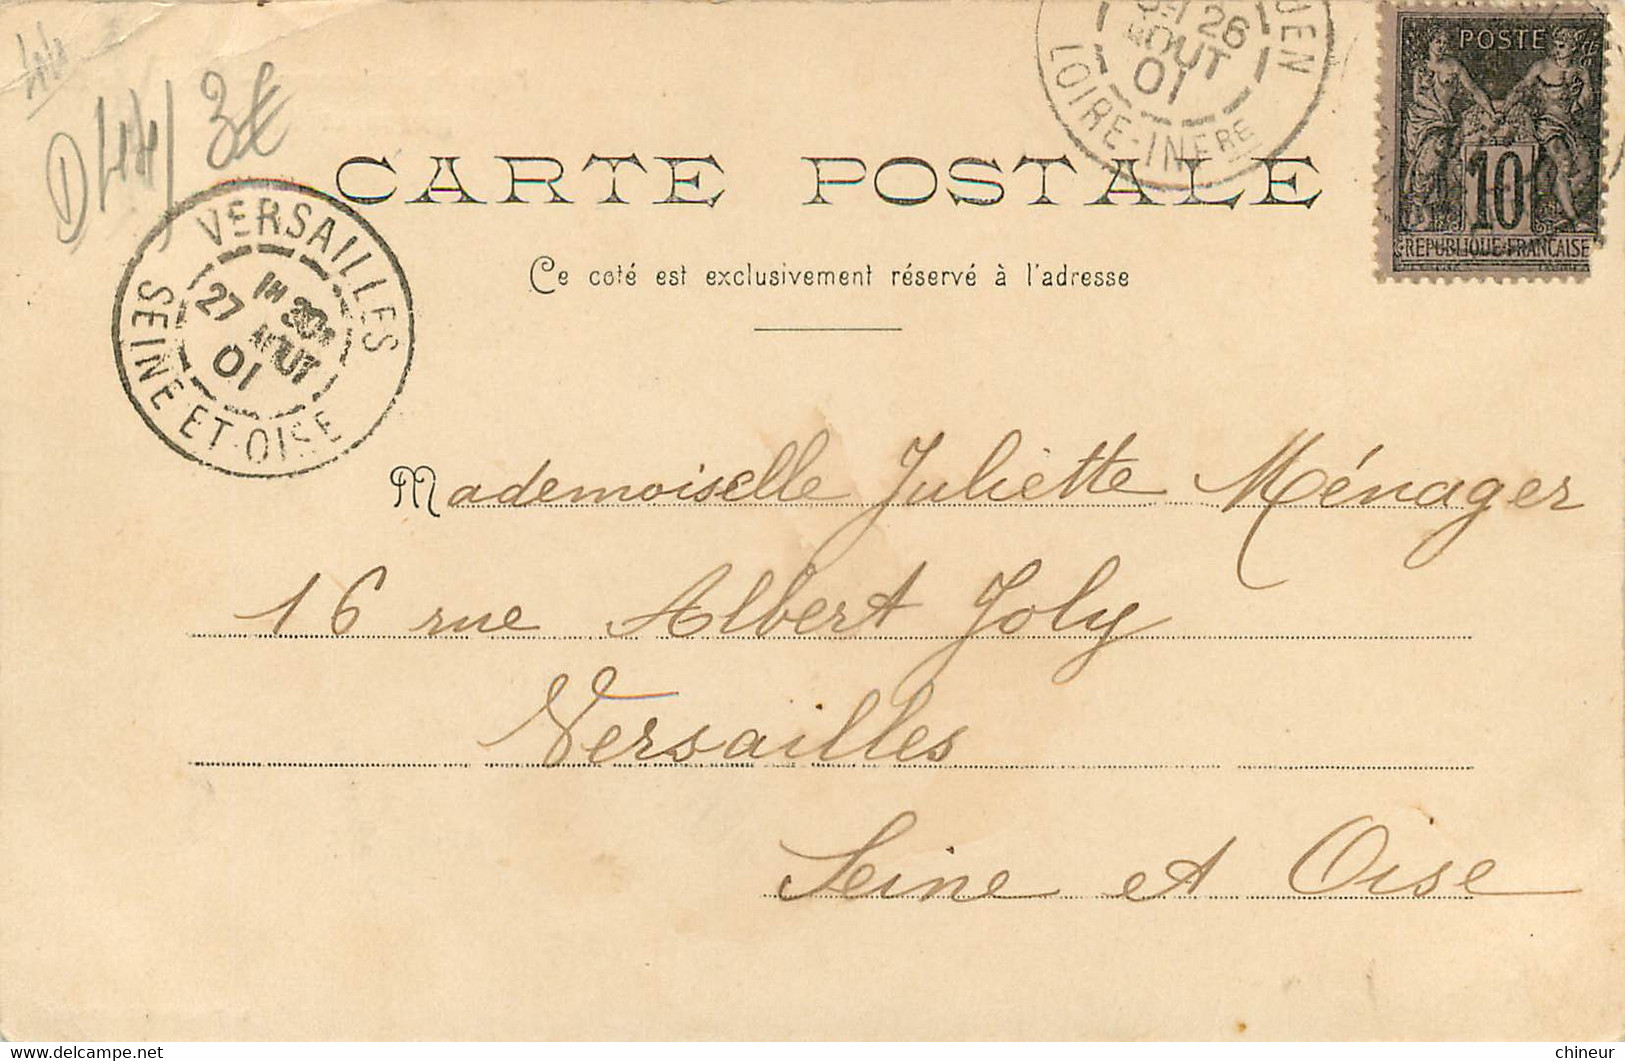 44
D44/ 3€
26
AOUT
01
LOIRE-INFRE
POSTE
10
REPUBLIQUE-FRANCAISE
CARTE POSTALE
Ce coté est exclusivement réservé à l'adresse
VERSAILLES
27
AOUT
01
SEINE-ET-OISE
Mademoiselle Juliette Ménager
16 rue Albert Joly
Versailles
Seine et Oise
chineur